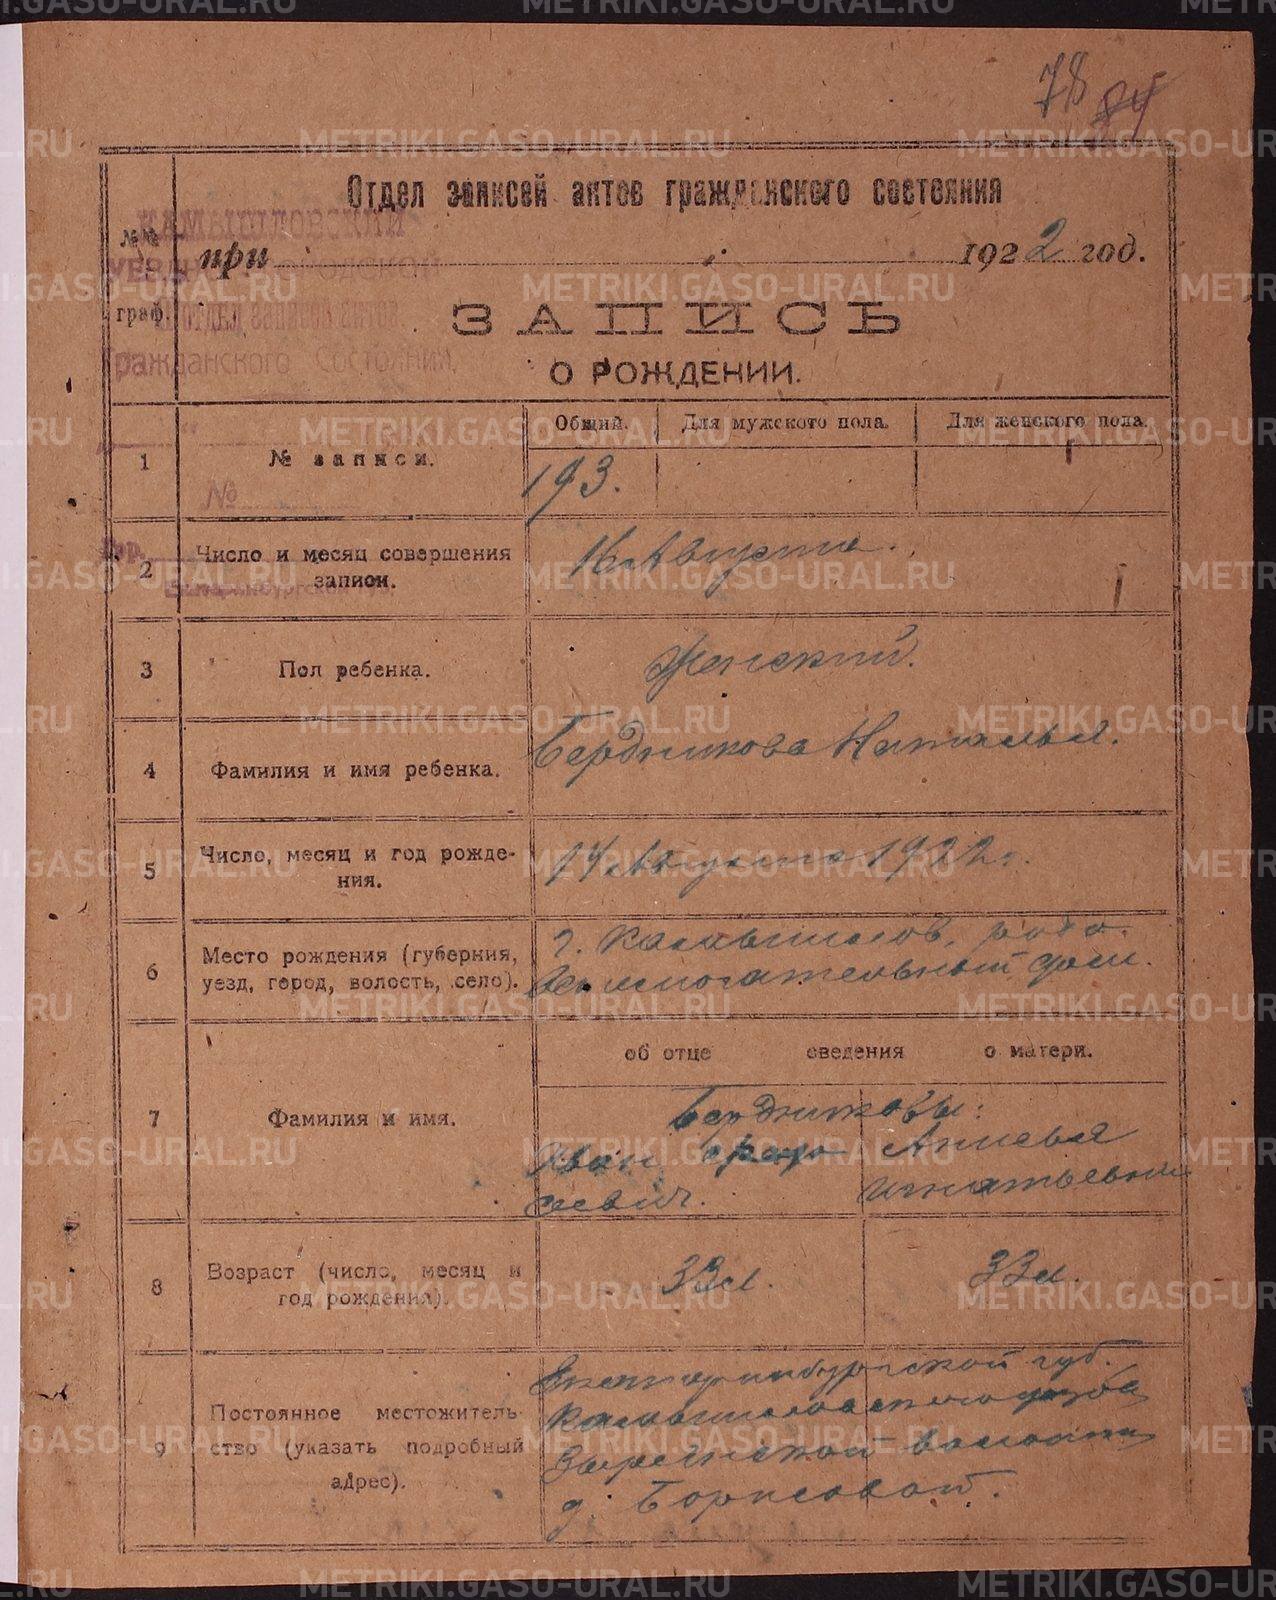 78 84
Отдел записей актов гражданского состояния
КАМЫШЛОВСКИЙ
№№
при 1922 год.
граф.
ЗАПИСЬ
Гражданского Состояния,
О РОЖДЕНИИ.
Общий. Для мужского пола. Для женского пола.
1 № записи. 193.
№
Гор.
2 Число и месяц совершения записи. 16 Августа.
Екатеринбургской губ.
3 Пол ребенка. Женский.
4 Фамилия и имя ребенка. Бердникова Наталья.
5 Число, месяц и год рожде-
ния. 14 Августа 1922 г.
6 Место рождения (губерния,
уезд, город, волость, село).
г. Камышлов, родо
вспомогательный дом.
об отце сведения о матери.
7 Фамилия и имя.
Бердниковы:
Иван Анисья
сеевич. Игнатьевна
8 Возраст (число, месяц и
год рождения). 33 л. 33 л.
9 Постоянное местожитель-
ство (указать подробный
адрес).
Екатеринбургской губ.
Камышловского уезда
волости
д. Борисовой.
METRIKI.GASO-URAL.RU